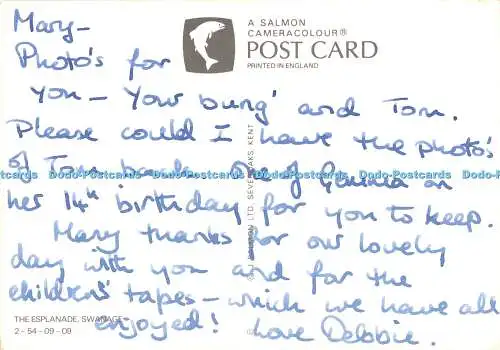 Mary-
A SALMON
CAMERACOLOUR®
POST CARD
PRINTED IN ENGLAND
Photo's for
you - Your bung' and Tom.
Please could I have the photo's
of Tom back. of Gemma on
her 14th birthday for you to keep.
Many thanks for our lovely
day with you and for the
children's tapes - which we have all
enjoyed! Love Debbie.
THE ESPLANADE, SWANAGE
2-54-09-09
© J SALMON LTD. SEVENOAKS, KENT
Dodo-Postcards Dodo-Postcards Dodo-Postcards Dodo-Postcards